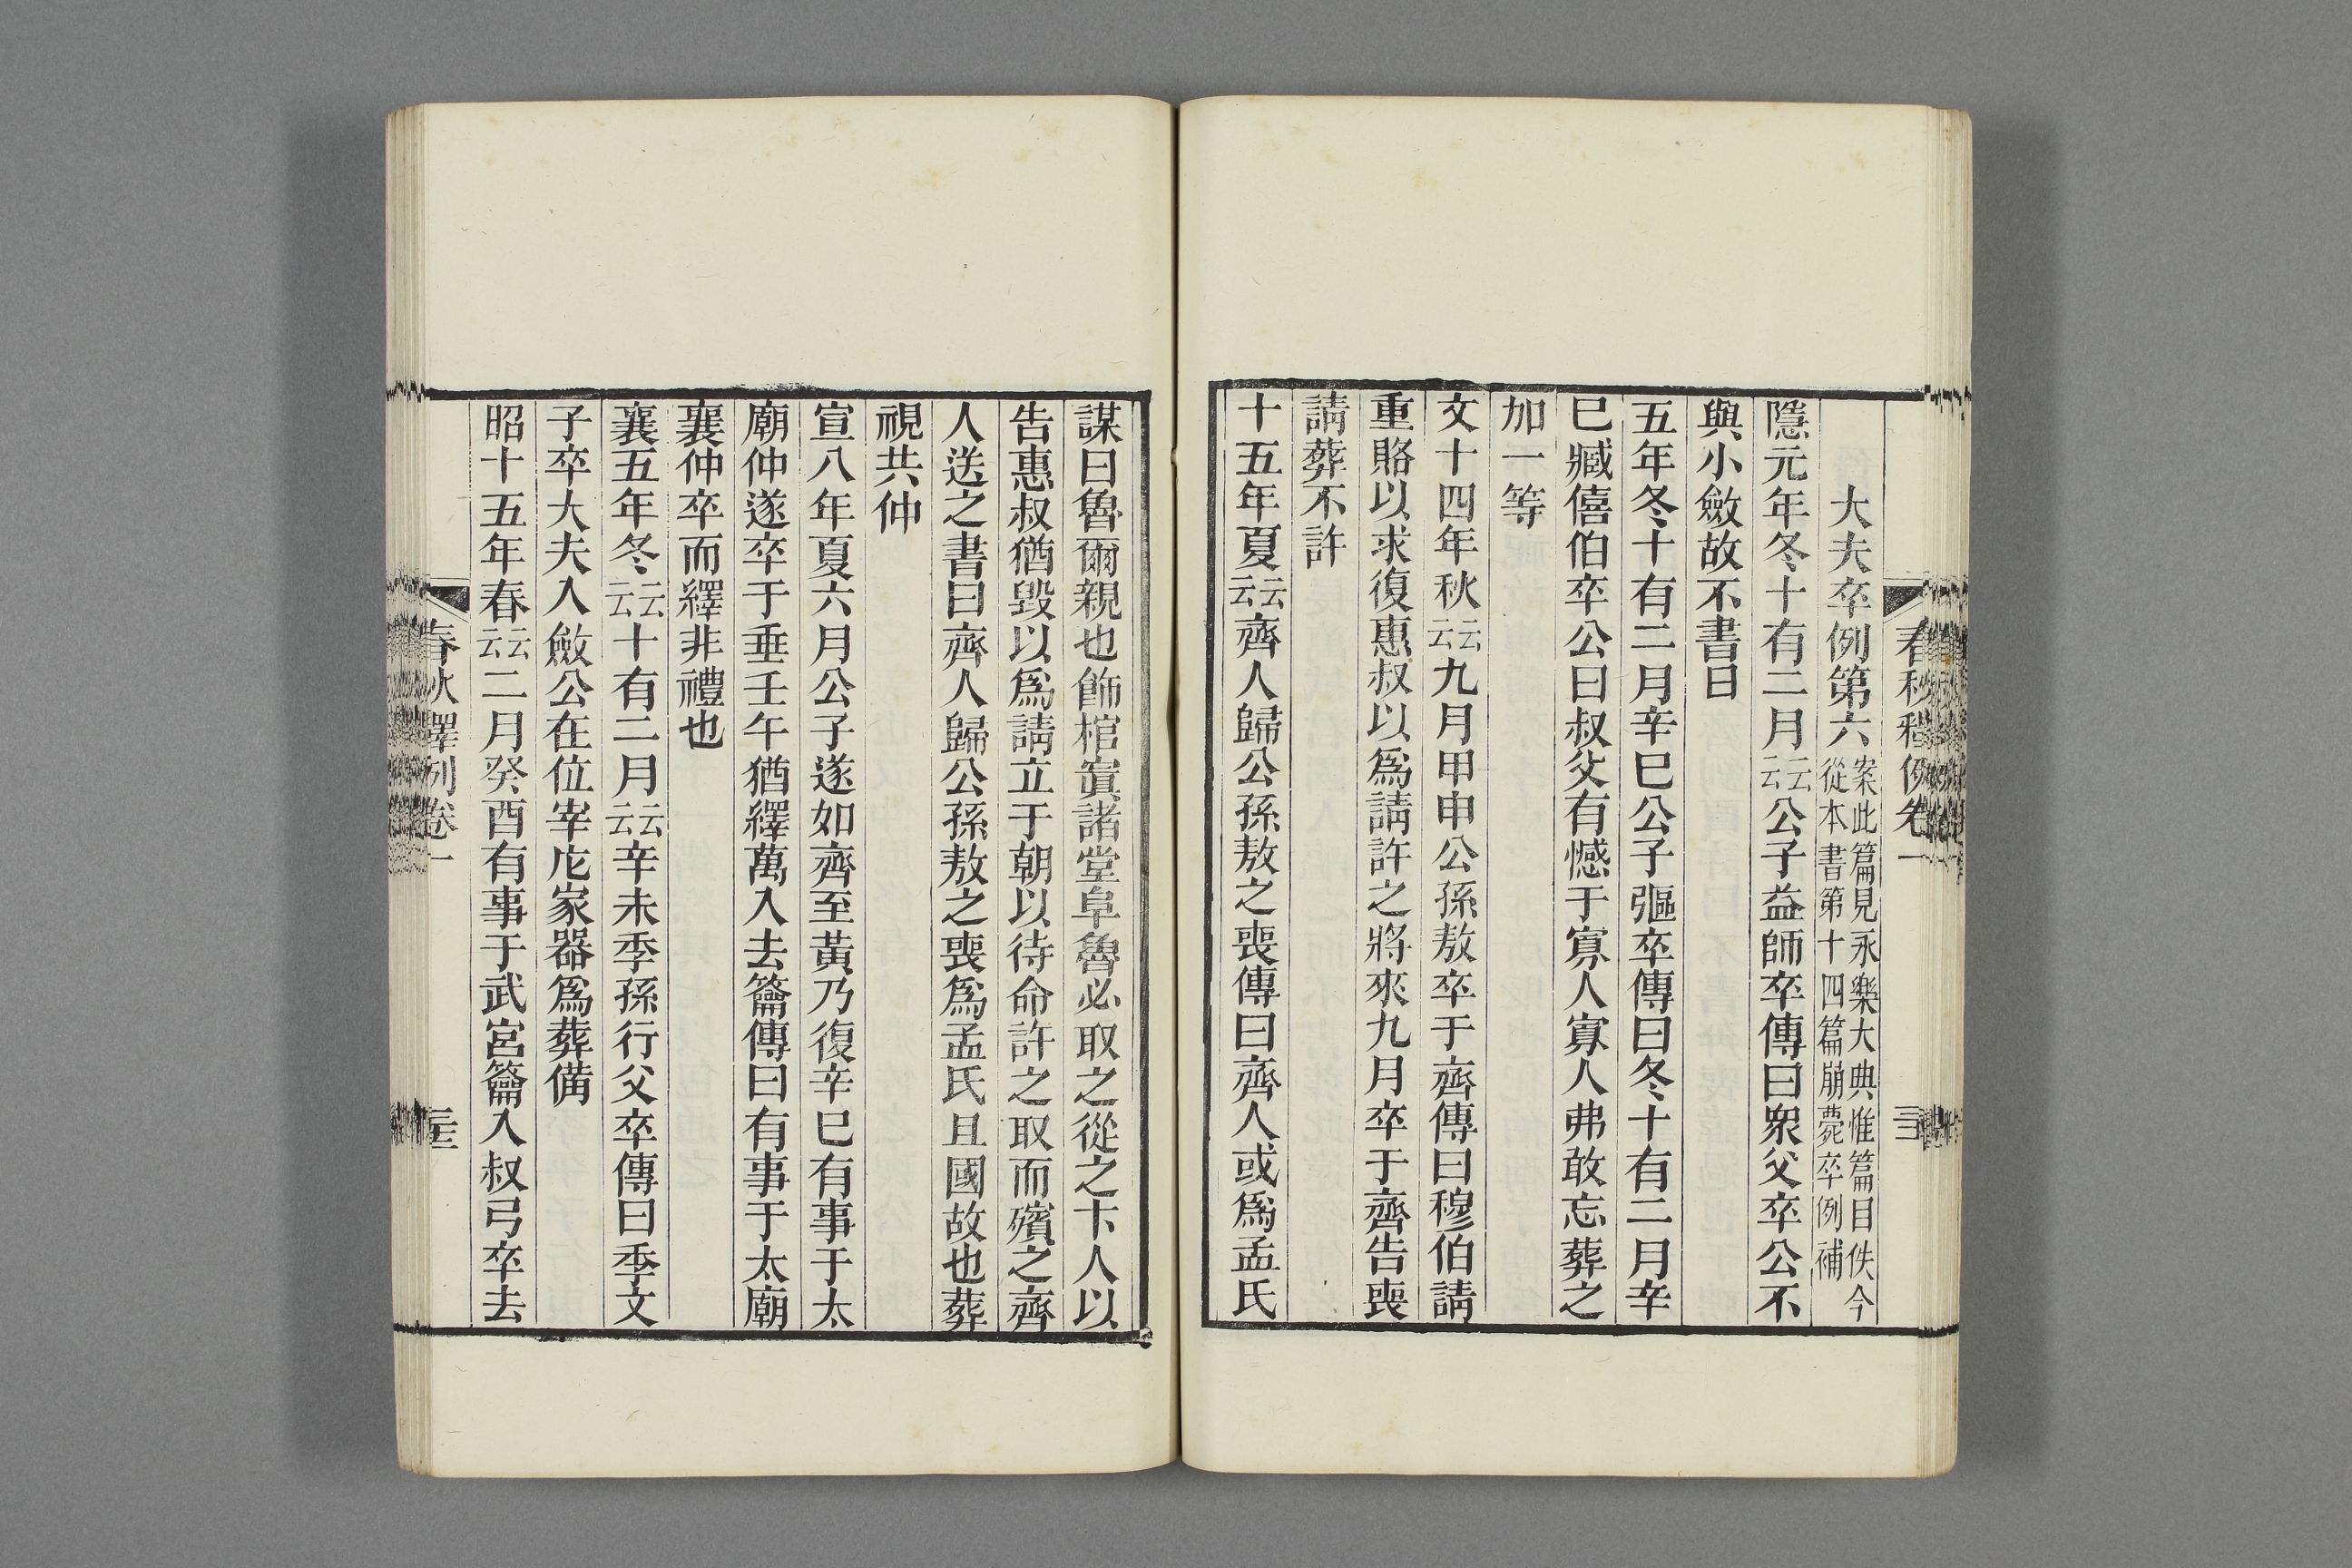 大夫卒例第六案此篇見永樂大典惟篇目佚今從本書第十四篇崩薨卒例補
隱元年冬十有二月云云公子益師卒傳曰衆父卒公不
與小斂故不書日
五年冬十有二月辛巳公子彄卒傳曰冬十有二月辛
巳臧僖伯卒公曰叔父有憾于寡人寡人弗敢忘葬之
加一等
文十四年秋云云九月甲申公孫敖卒于齊傳曰穆伯請
重賂以求復惠叔以爲請許之將來九月卒于齊告喪
請葬不許
十五年夏云云齊人歸公孫敖之喪傳曰齊人或爲孟氏
謀曰魯爾親也飾棺寘諸堂阜魯必取之從之卞人以
告惠叔猶毀以爲請立于朝以待命許之取而殯之齊
人送之書曰齊人歸公孫敖之喪爲孟氏且國故也葬
視共仲
宣八年夏六月公子遂如齊至黃乃復辛巳有事于太
廟仲遂卒于垂壬午猶繹萬入去籥傳曰有事于太廟
襄仲卒而繹非禮也
襄五年冬云云十有二月云云辛未季孫行父卒傳曰季文
子卒大夫入斂公在位宰庀家器爲葬備
昭十五年春云云二月癸酉有事于武宮籥入叔弓卒去
春秋釋例卷一